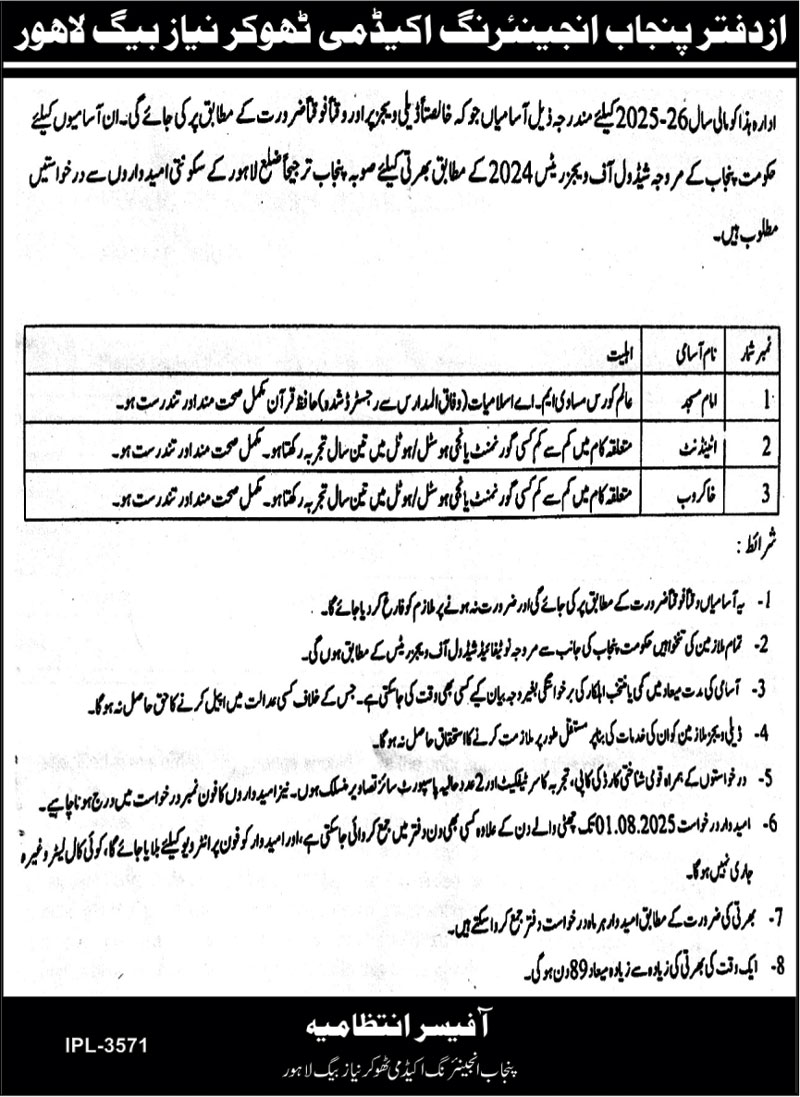 ازدفتر پنجاب انجینئرنگ اکیڈمی ٹھوکر نیاز بیگ لاہور
ادارہ ہذا کو مالی سال 26-2025 کیلئے مندرجہ ذیل آسامیاں جو کہ خالصتاً ڈیلی ویجز پر اور وقتاً فوقتاً ضرورت کے مطابق پر کی جائے گی۔ ان آسامیوں کیلئے
حکومت پنجاب کے مروجہ شیڈول آف ویجز ریٹس 2024 کے مطابق بھرتی کیلئے صوبہ پنجاب ترجیحاً ضلع لاہور کے سکونتی امیدواروں سے درخواستیں
مطلوب ہیں۔
نمبر شمار نام آسامی اہلیت
1 امام مسجد عالم کورس مساوی ایم۔اے اسلامیات (وفاق المدارس سے رجسٹرڈ شدہ) حافظ قرآن مکمل صحت مند اور تندرست ہو۔
2 اٹینڈنٹ متعلقہ کام میں کم سے کم کسی گورنمنٹ یا نجی ہوسٹل/ہوٹل میں تین سال تجربہ رکھتا ہو۔ مکمل صحت مند اور تندرست ہو۔
3 خاکروب متعلقہ کام میں کم سے کم کسی گورنمنٹ یا نجی ہوسٹل/ہوٹل میں تین سال تجربہ رکھتا ہو۔ مکمل صحت مند اور تندرست ہو۔
شرائط :
1- یہ آسامیاں وقتاً فوقتاً ضرورت کے مطابق پر کی جائے گی اور ضرورت نہ ہونے پر ملازم کو فارغ کر دیا جائے گا۔
2- تمام ملازمین کی تنخواہیں حکومت پنجاب کی جانب سے مروجہ نوٹیفائیڈ شیڈول آف ویجز ریٹس کے مطابق ہوں گی۔
3- آسامی کی مدت میعاد میں کمی یا منتخب اہلکار کی برخواستگی بغیر وجہ بیان کیے کسی بھی وقت کی جاسکتی ہے۔ جس کے خلاف کسی عدالت میں اپیل کرنے کا حق حاصل نہ ہوگا۔
4- ڈیلی ویجز ملازمین کو ان کی خدمات کی بنا پر مستقل طور پر ملازمت کرنے کا استحقاق حاصل نہ ہوگا۔
5- درخواستوں کے ہمراہ قومی شناختی کارڈ کی کاپی، تجربہ کا سرٹیفکیٹ اور 2 عدد حالیہ پاسپورٹ سائز تصاویر منسلک ہوں۔ نیز امیدواروں کا فون نمبر درخواست میں درج ہونا چاہیے۔
6- امیدوار درخواست 01.08.2025 تک چھٹی والے دن کے علاوہ کسی بھی دن دفتر میں جمع کروائی جاسکتی ہے، اور امیدوار کو فون پر انٹرویو کیلئے بلایا جائے گا، کوئی کال لیٹر وغیرہ
جاری نہیں ہوگا۔
7- بھرتی کی ضرورت کے مطابق امیدوار ہر ماہ درخواست دفتر جمع کروا سکتے ہیں۔
8- ایک وقت کی بھرتی کی زیادہ سے زیادہ میعاد 89 دن ہوگی۔
آفیسر انتظامیہ
پنجاب انجینئرنگ اکیڈمی ٹھوکر نیاز بیگ لاہور
IPL-3571